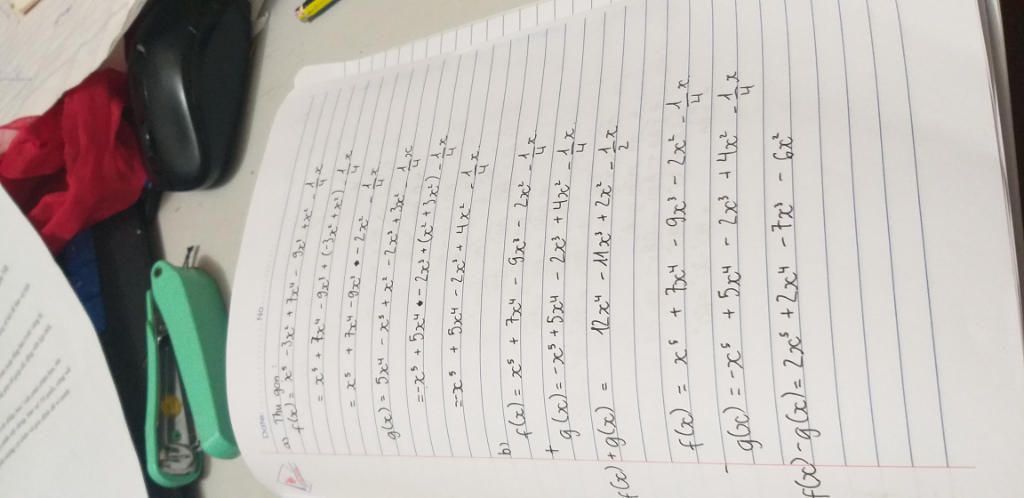 No.
Date
a) Thu gọn :
f(x) = x⁵ - 3x² + 7x⁴ - 9x³ + x² - 1/4 x
= x⁵ + 7x⁴ - 9x³ + (-3x² + x²) - 1/4 x
= x⁵ + 7x⁴ - 9x³ - 2x² - 1/4 x
g(x) = 5x⁴ - x⁵ + x² - 2x³ + 3x² - 1/4 x
= -x⁵ + 5x⁴ - 2x³ + (x² + 3x²) - 1/4 x
= -x⁵ + 5x⁴ - 2x³ + 4x² - 1/4 x.
b) f(x) = x⁵ + 7x⁴ - 9x³ - 2x² - 1/4 x.
+ g(x) = -x⁵ + 5x⁴ - 2x³ + 4x² - 1/4 x.
f(x) + g(x) = 12x⁴ - 11x³ + 2x² - 1/2 x
f(x) = x⁵ + 7x⁴ - 9x³ - 2x² - 1/4 x.
- g(x) = -x⁵ + 5x⁴ - 2x³ + 4x² - 1/4 x
f(x) - g(x) = 2x⁵ + 2x⁴ - 7x³ - 6x²